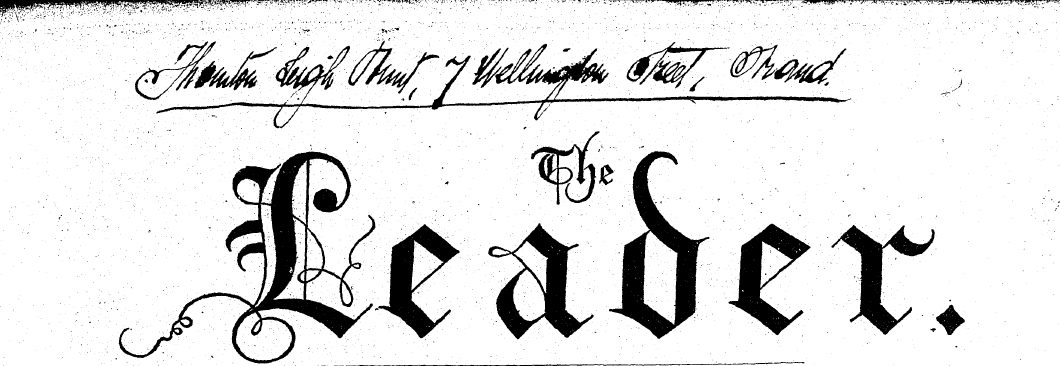 Thornton Leigh Hunt, 7 Wellington Street, Strand.
The
Leader.